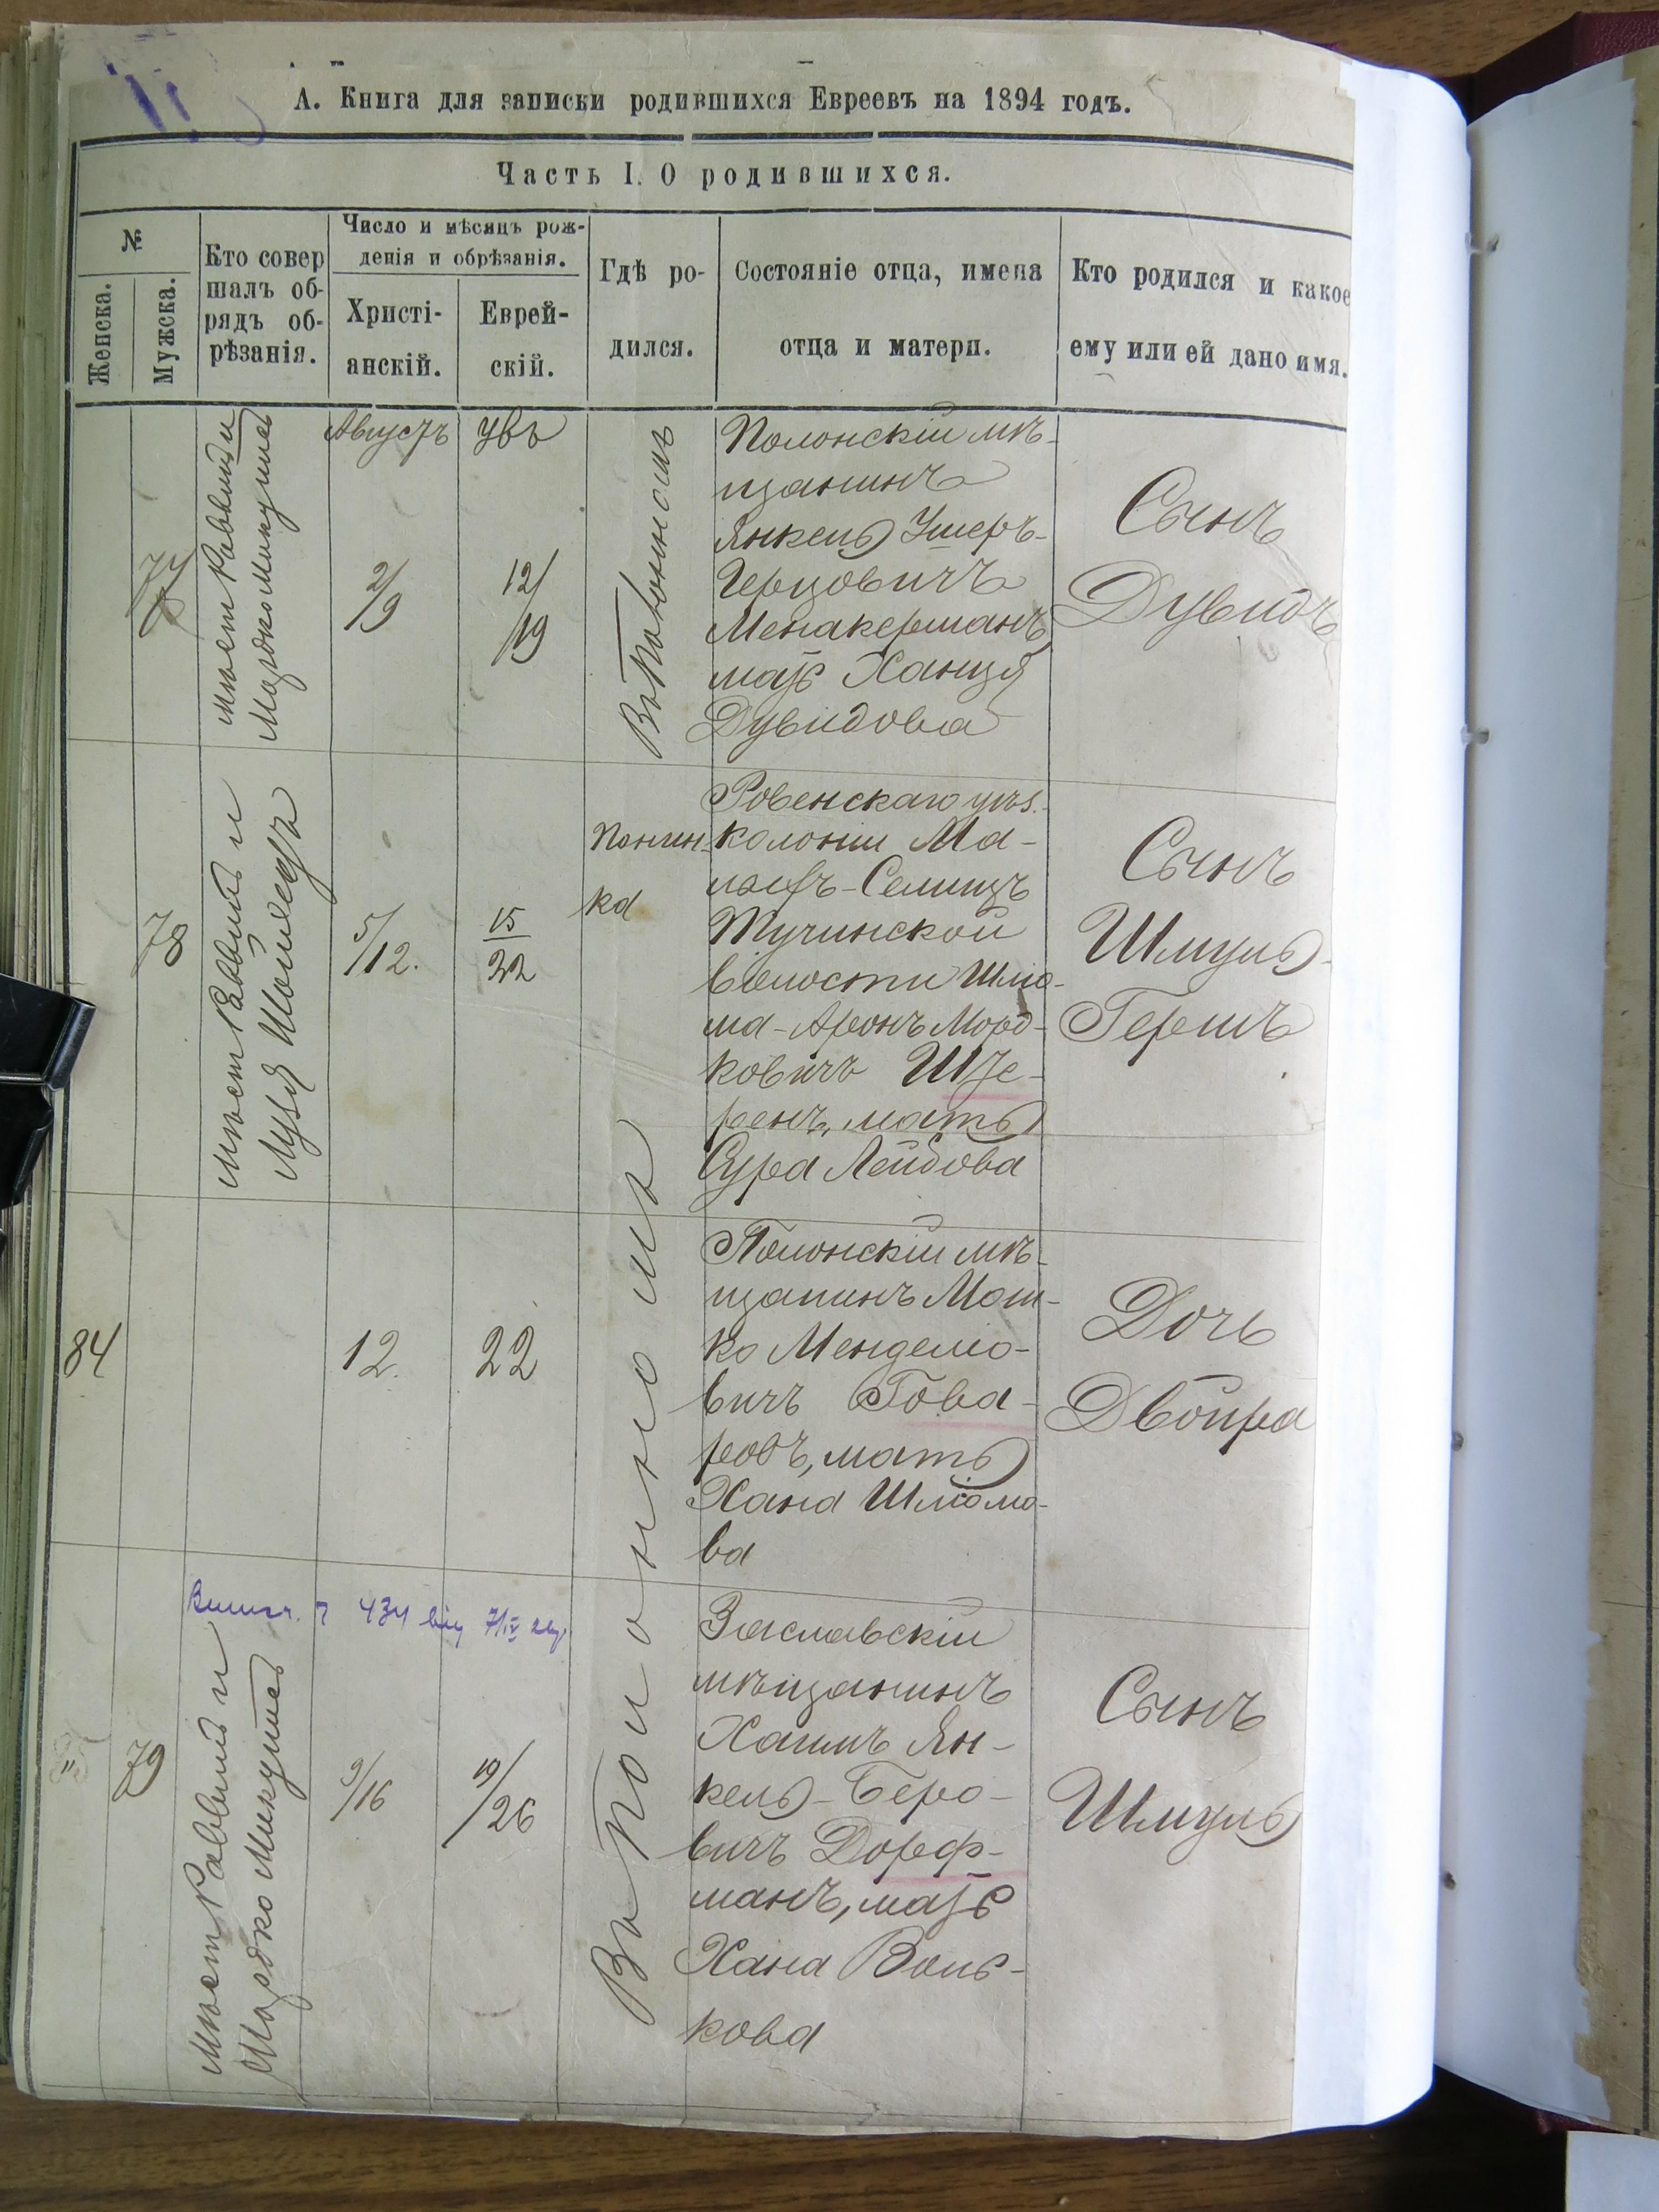 А. Книга для записки родившихся Евреевъ на 1894 годъ.
Часть I. О родившихся.
№
Женска.
Мужска.
Кто совер
шалъ об-
рядъ об-
рѣзанія.
Число и мѣсяцъ рож-
денія и обрѣзанія.
Христі-
анскій.
Еврей-
скій.
Гдѣ ро-
дился.
Состояніе отца, имена
отца и матери.
Кто родился и какое
ему или ей дано имя.
77
Мѣст Раввинъ и
Мордко Микушнеъ
Августъ
2/9
Увъ
12/19
Въ Полонномъ
Полонскій мѣ-
щанинъ
Янкель Ушеръ-
Герцовичъ
Менакерманъ,
мать Ханця
Дувидова
Сынъ
Дувидъ
78
Мѣст Раввинъ и
Лузя
5/12.
15/22
Понин-
ка
Ровенскаго уѣз.
колоніи Ма-
Селищъ
Тучинской
волости Шлио-
ма-АронъМорд-
ковичъ Ште-
ренъ, мать
Сура Лейбова
Сынъ
Шмуль-
Гершъ
84
12.
22
Въ Полономъ
Полонскій мѣ-
щанинъ Мош-
ко Менделіо-
вичъ Гова-
ровъ, мать
Хана Шліомо-
ва
Дочь
Двойра
434 від 7/IV
79
Мѣст Раввинъ и
Мордко Микушнеъ
9/16
19/26
Заславскій
мѣщанинъ
Хаимъ Ян-
кель-Беро-
вичъ Дорф-
манъ, мать
Хана Воль-
кова
Сынъ
Шмуль